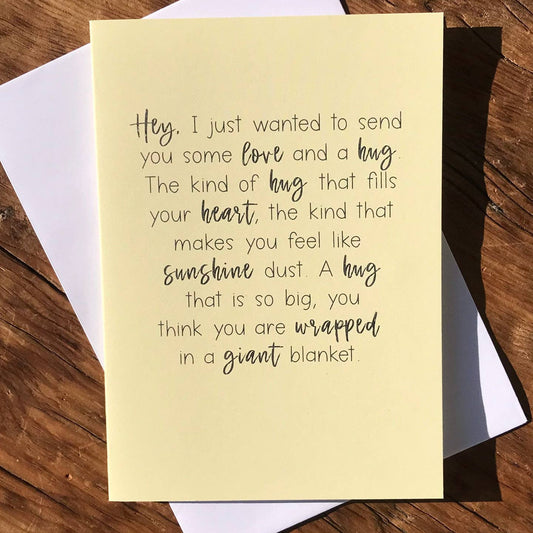 Hey, I just wanted to send
you some love and a hug.
The kind of hug that fills
your heart, the kind that
makes you feel like
sunshine dust. A hug
that is so big, you
think you are wrapped
in a giant blanket.